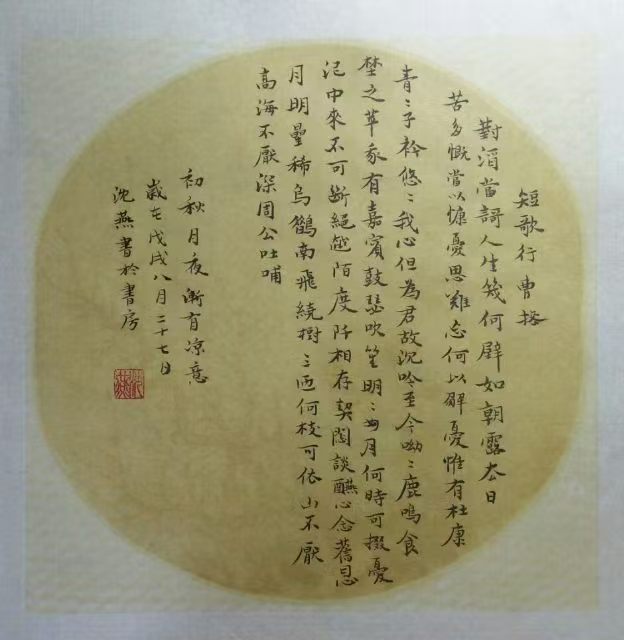 短歌行 曹操
對酒當謌人生幾何辟如朝露厺日
苦多慨當以慷憂思難忘何以解憂惟有杜康
青〻子衿悠〻我心但為君故沉吟至今呦〻鹿鳴食
埜之苹我有嘉賓鼓瑟吹笙明〻如月何時可掇憂
從中來不可斷絕越陌度阡相存契闊談醼心念舊恩
月明星稀烏鵲南飛繞樹三匝何枝可依山不厭
高海不厭深周公吐哺
初秋月夜漸有涼意
歲在戊戌八月二十七日
沈燕書於書房